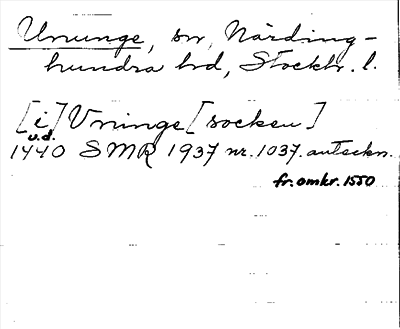 Ununge, sn, Närding-
hundra hd, Stockh. l.
[i] Vninge [socken]
u.d.
1440 SMR 1937 nr. 1037. anteckn.
fr. omkr. 1550